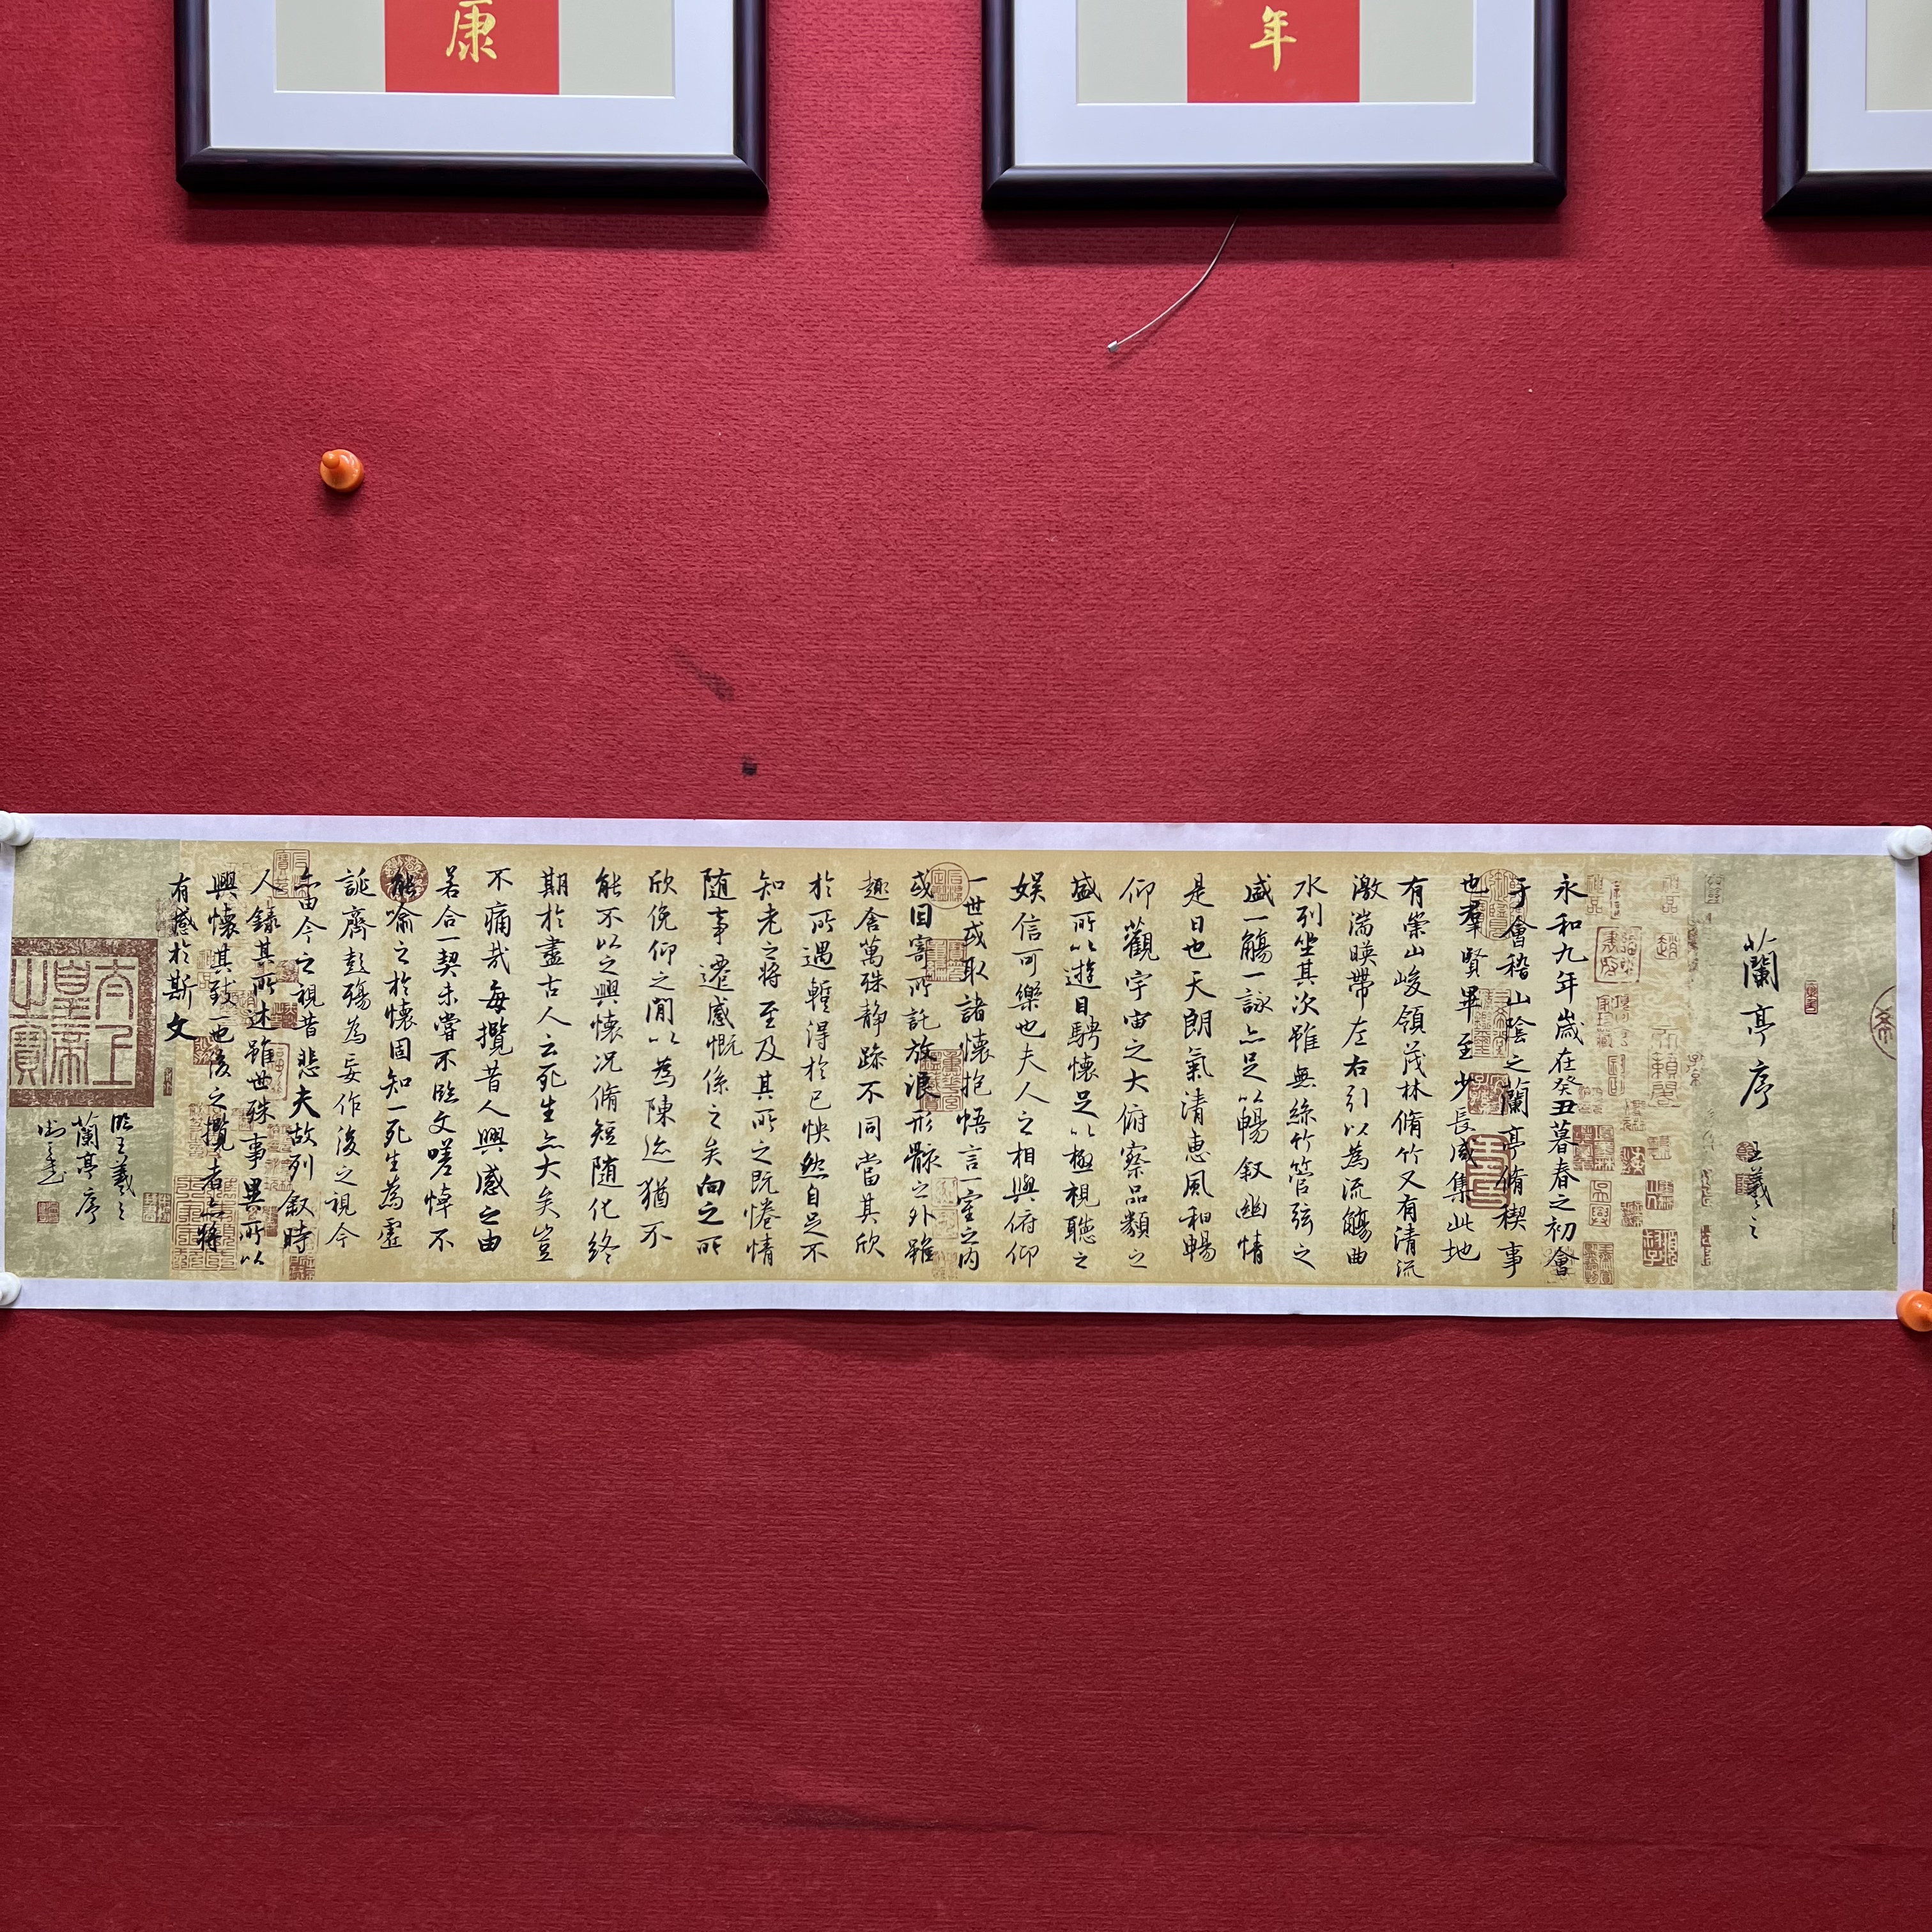 康
年
蘭亭序
王羲之
永和九年歲在癸丑暮春之初會
于會稽山陰之蘭亭脩稧事
也羣賢畢至少長咸集此地
有崇山峻領茂林脩竹又有清流
激湍暎帶左右引以為流觴曲
水列坐其次雖無絲竹管弦之
盛一觴一詠亦足以暢叙幽情
是日也天朗氣清惠風和暢
仰觀宇宙之大俯察品類之
盛所以遊目騁懷足以極視聽之
娱信可樂也夫人之相與俯仰
一世或取諸懷抱悟言一室之內
或因寄所託放浪形骸之外雖
趣舍萬殊静躁不同當其欣
於所遇蹔得於己怏然自足不
知老之將至及其所之既惓情
随事遷感慨係之矣向之所
欣俛仰之閒以為陳迹猶不
能不以之興懷况脩短随化終
期於盡古人云死生亦大矣豈
不痛哉每攬昔人興感之由
若合一契未嘗不臨文嗟悼不
能喻之於懷固知一死生為虛
誕齊彭殤為妄作後之視今
亦由今之視昔悲夫故列叙時
人錄其所述雖世殊事異所以
興懷其致一也後之攬者亦將
有感於斯文
太上皇帝之寶
臨王羲之
蘭亭序